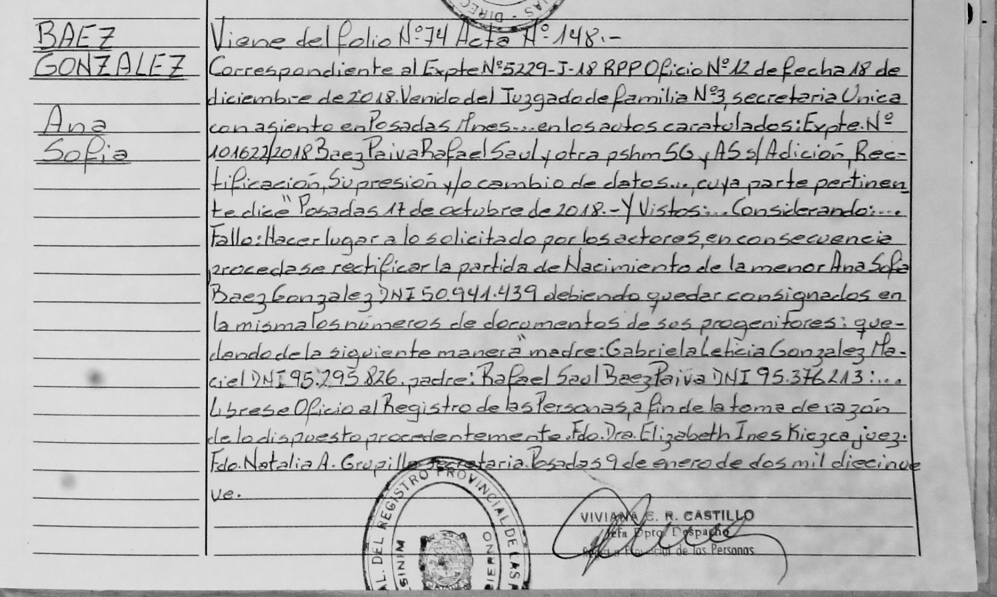 DIREC
BAEZ
GONZALEZ
Ana
Sofia
Viene del folio Nº74 Acta Nº 148.-
Correspondiente al Expte Nº5229-J-18 RPP Oficio Nº12 de fecha 18 de
diciembre de 2018. Venido del Juzgado de familia Nº3, secretaria Unica
con asiento en Posadas Mnes... en los autos caratulados: Expte. Nº
101622/2018 Baez Paiva Rafael Saul y otra pshm SG y AS s/Adición, Rec-
tificación, Supresión y/o cambio de datos..., cuya parte pertinen
te dice" Posadas 17 de octubre de 2018.- Y Vistos:... Considerando:...
Fallo: Hacer lugar a lo solicitado por los actores, en consecuencia
procedase rectificar la partida de Nacimiento de la menor Ana Sofia
Baez Gonzalez DNI 50.941.439 debiendo quedar consignados en
la misma los números de documentos de sus progenitores: que-
dando de la siguiente manera" madre: Gabriela Leticia Gonzalez Ma-
ciel DNI 95.295.826. padre: Rafael Saul Baez Paiva DNI 95.376.213:...
Librese Oficio al Registro de las Personas, a fin de la toma de razón
de lo dispuesto procedentemente. Fdo. Dra. Elizabeth Ines Kiczca, juez.
Fdo. Natalia A. Grupillo secretaria. Posadas 9 de enero de dos mil diecinue
ve.
AL. DEL REGISTRO PROVINCIAL DE LAS
VIVIANA E. R. CASTILLO
Jefa Dpto. Despacho
Provincial de las Personas